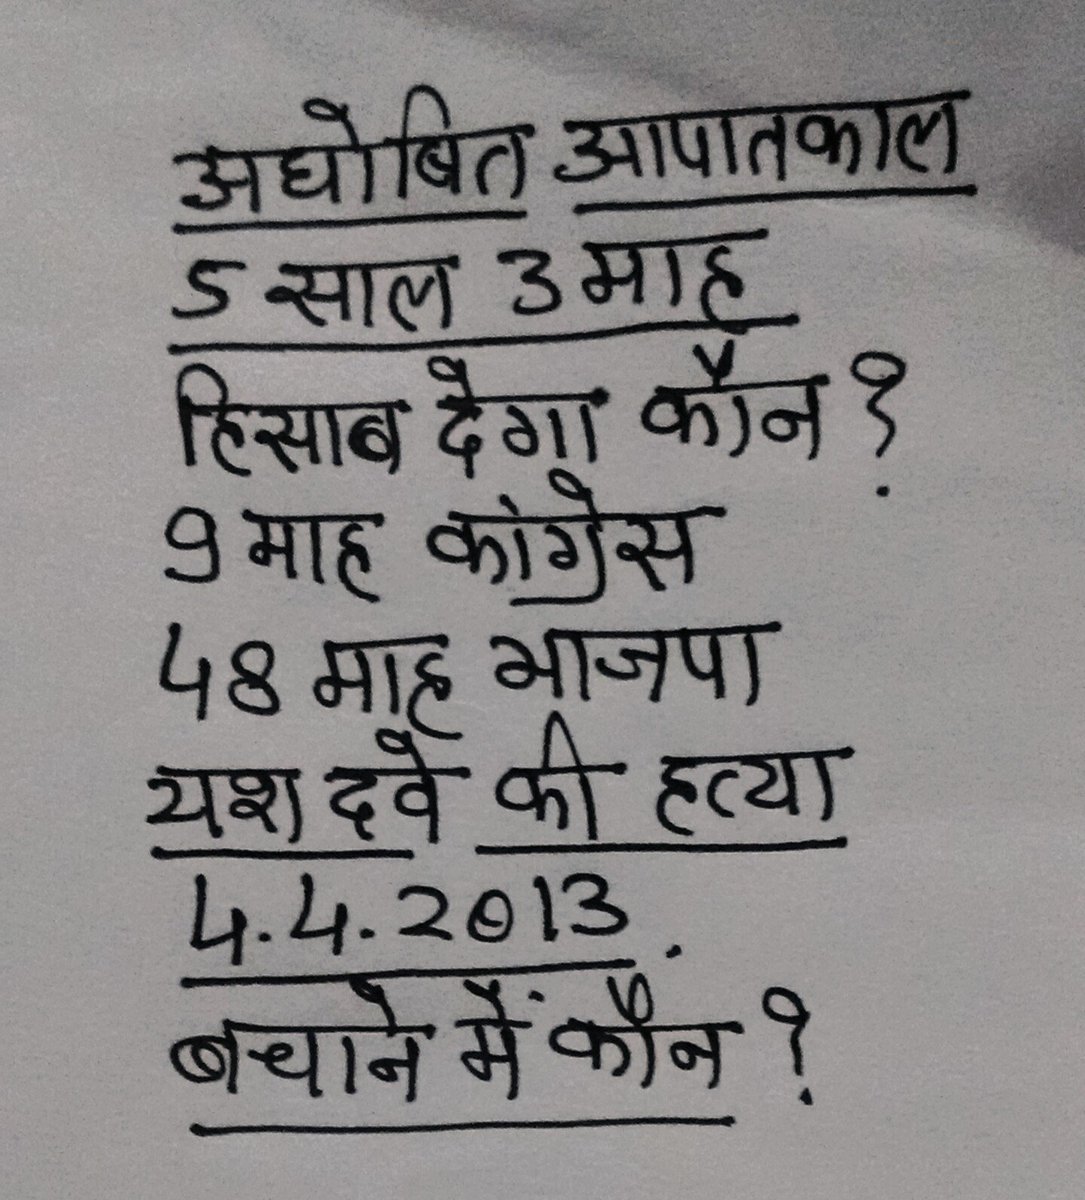 अघोषित आपातकाल
5 साल 3 माह
हिसाब देगा कौन ?
9 माह कांग्रेस
48 माह भाजपा
यश दवे की हत्या
4.4.2013.
बचाने में कौन ?